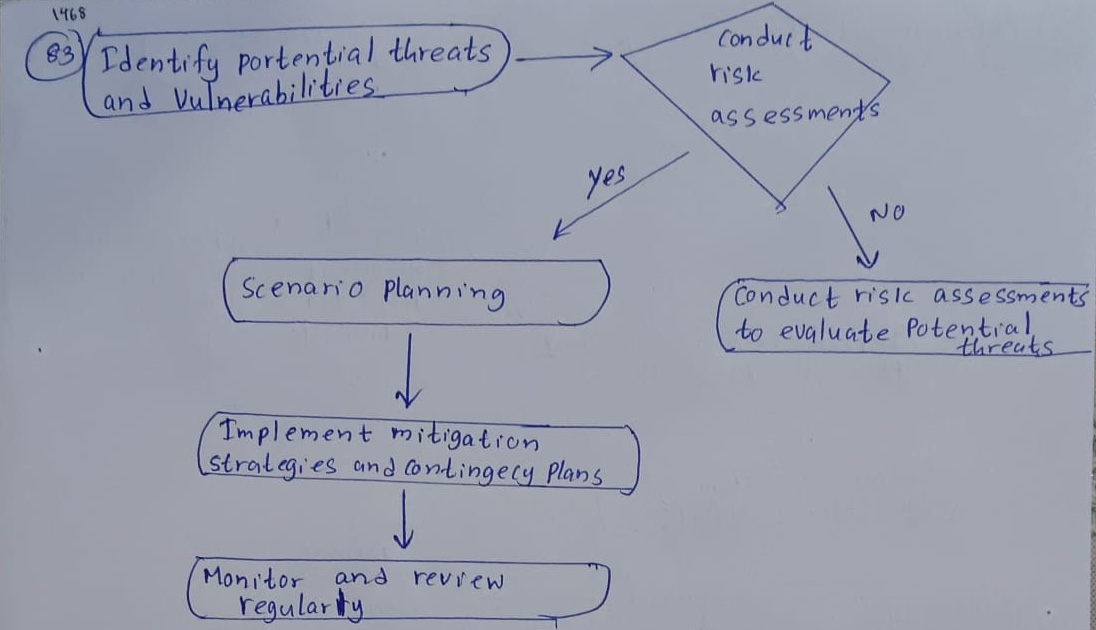 1468
83
Identify portential threats
and Vulnerabilities
conduct
risk
assessments
Yes
NO
Scenario Planning
Conduct risk assessments
to evaluate Potential
threats
Implement mitigation
strategies and contingecy Plans
Monitor and review
regularly